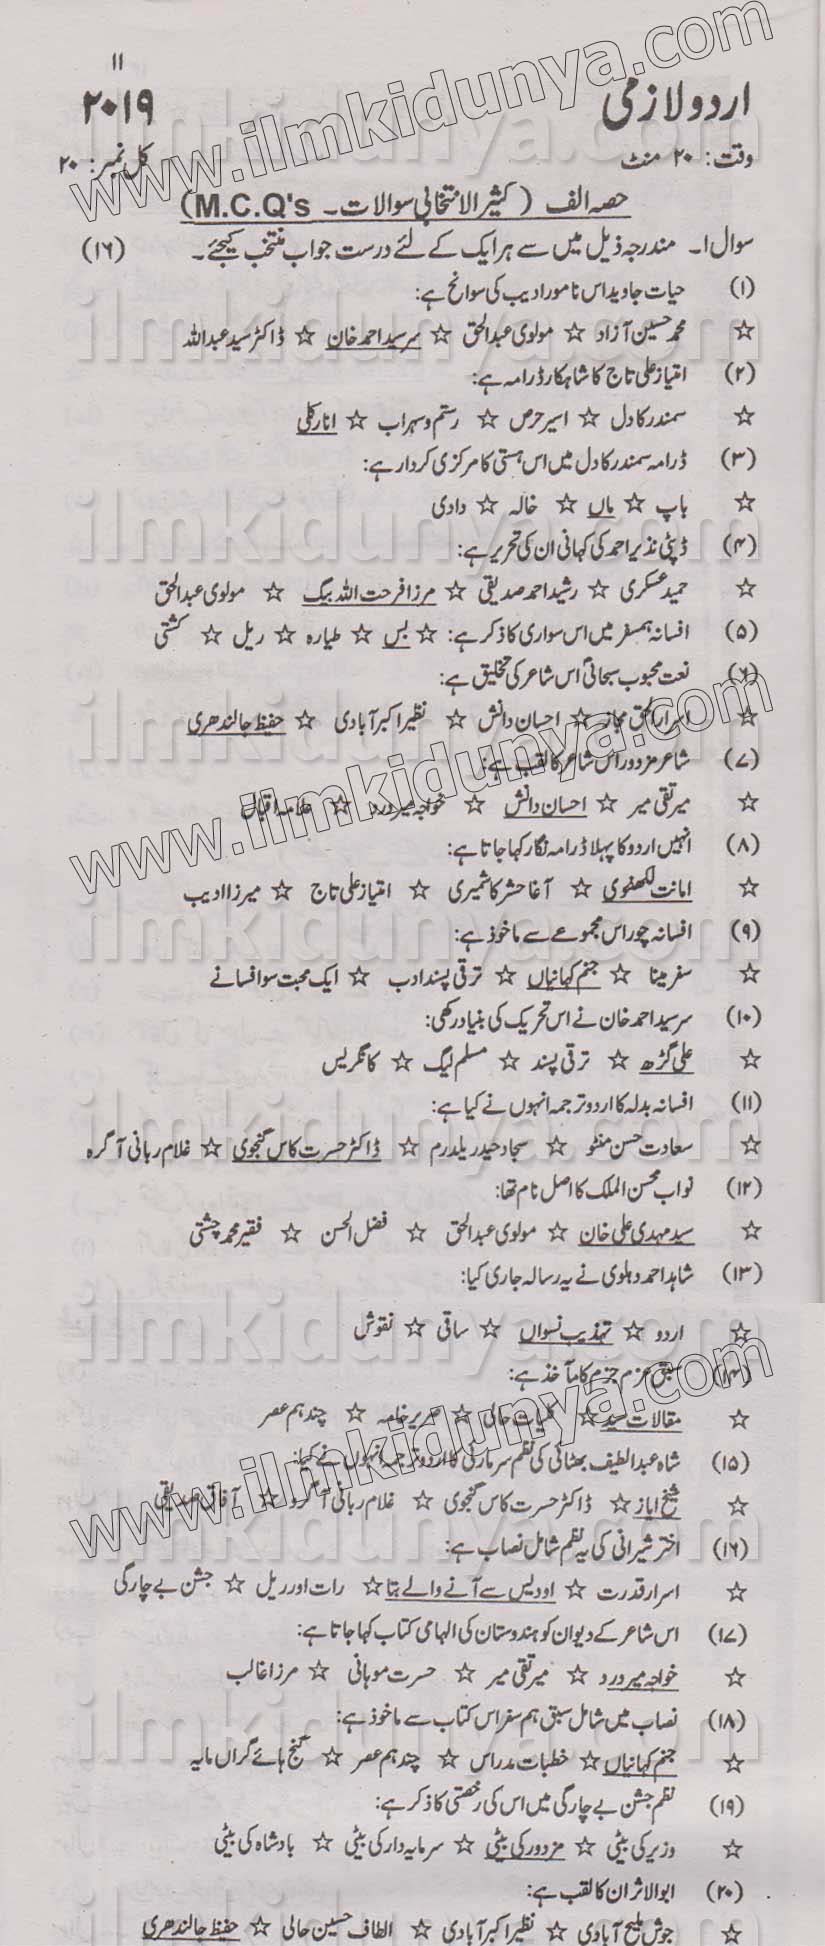 ۱۱
اردو لازمی ۲۰۱۹
وقت: ۲۰ منٹ کل نمبر: ۲۰
حصہ الف (کثیر الانتخابی سوالات۔ M.C.Q's)
سوال۱۔ مندرجہ ذیل میں سے ہر ایک کے لئے درست جواب منتخب کیجئے۔ (۱۶)
(۱) حیات جاوید اس نامور ادیب کی سوانح ہے:
☆ محمد حسین آزاد ☆ مولوی عبدالحق ☆ سرسید احمد خان ☆ ڈاکٹر سید عبداللہ
(۲) امتیاز علی تاج کا شاہکار ڈرامہ ہے:
☆ سمندر کا دل ☆ اسیر حرص ☆ رستم و سہراب ☆ انارکلی
(۳) ڈرامہ سمندر کا دل میں اس ہستی کا مرکزی کردار ہے:
☆ باپ ☆ ماں ☆ خالہ ☆ دادی
(۴) ڈپٹی نذیر احمد کی کہانی ان کی تحریر ہے:
☆ حمید عسکری ☆ رشید احمد صدیقی ☆ مرزا فرحت اللہ بیگ ☆ مولوی عبدالحق
(۵) افسانہ ہمسفر میں اس سواری کا ذکر ہے: ☆ بس ☆ طیارہ ☆ ریل ☆ کشتی
(۶) نعت محبوب سبحانی اس شاعر کی تخلیق ہے:
☆ اسرار الحق مجاز ☆ احسان دانش ☆ نظیر اکبر آبادی ☆ حفیظ جالندھری
(۷) شاعر مزدور اس شاعر کا لقب ہے:
☆ میر تقی میر ☆ احسان دانش ☆ خواجہ میر درد ☆ علامہ اقبال
(۸) انہیں اردو کا پہلا ڈرامہ نگار کہا جاتا ہے:
☆ امانت لکھنوی ☆ آغا حشر کاشمیری ☆ امتیاز علی تاج ☆ میرزا ادیب
(۹) افسانہ چور اس مجموعے سے ماخوذ ہے:
☆ سفر مینا ☆ جنم کہانیاں ☆ ترقی پسند ادب ☆ ایک محبت سو افسانے
(۱۰) سرسید احمد خان نے اس تحریک کی بنیاد رکھی:
☆ علی گڑھ ☆ ترقی پسند ☆ مسلم لیگ ☆ کانگریس
(۱۱) افسانہ بدلہ کا اردو ترجمہ انہوں نے کیا ہے:
☆ سعادت حسن منٹو ☆ سجاد حیدر یلدرم ☆ ڈاکٹر حسرت کاس گنجوی ☆ غلام ربانی آگرہ
(۱۲) نواب محسن الملک کا اصل نام تھا:
☆ سید مہدی علی خان ☆ مولوی عبدالحق ☆ فضل الحسن ☆ فقیر محمد چشتی
(۱۳) شاہد احمد دہلوی نے یہ رسالہ جاری کیا:
☆ اردو ☆ تہذیب نسواں ☆ ساقی ☆ نقوش
(۱۴) سبق عزم جزم کا مآخذ ہے:
☆ مقالات سید ☆ کلیات حالی ☆ صریر خامہ ☆ چند ہم عصر
(۱۵) شاہ عبداللطیف بھٹائی کی نظم سر مارئی کا اردو ترجمہ انہوں نے کیا:
☆ شیخ ایاز ☆ ڈاکٹر حسرت کاس گنجوی ☆ غلام ربانی آگرو ☆ آفاق صدیقی
(۱۶) اختر شیرانی کی یہ نظم شامل نصاب ہے:
☆ اسرار قدرت ☆ او دیس سے آنے والے بتا ☆ رات اور ریل ☆ جشن بے چارگی
(۱۷) اس شاعر کے دیوان کو ہندوستان کی الہامی کتاب کہا جاتا ہے:
☆ خواجہ میر درد ☆ میر تقی میر ☆ حسرت موہانی ☆ مرزا غالب
(۱۸) نصاب میں شامل سبق ہم سفر اس کتاب سے ماخوذ ہے:
☆ جنم کہانیاں ☆ خطبات مدراس ☆ چند ہم عصر ☆ گنج ہائے گراں مایہ
(۱۹) نظم جشن بے چارگی میں اس کی رخصتی کا ذکر ہے:
☆ وزیر کی بیٹی ☆ مزدور کی بیٹی ☆ سرمایہ دار کی بیٹی ☆ بادشاہ کی بیٹی
(۲۰) ابوالاثر ان کا لقب ہے:
☆ جوش ملیح آبادی ☆ نظیر اکبر آبادی ☆ الطاف حسین حالی ☆ حفیظ جالندھری
www.ilmkidunya.com
www.ilmkidunya.com
www.ilmkidunya.com
ilmkidunya.com
ilmkidunya.com
ilmkidunya.com
ilmkidunya.com
ilmkidunya.com
ilmkidunya.com
ilmkidunya.com
ilmkidunya.com